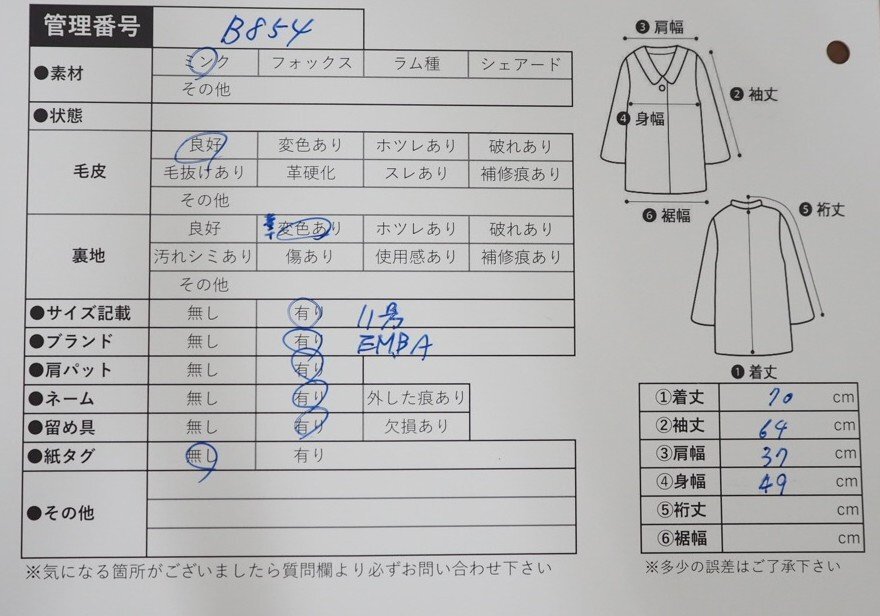 管理番号 B854
●素材 ミンク フォックス ラム種 シェアード
その他
●状態
毛皮 良好 変色あり ホツレあり 破れあり
毛抜けあり 革硬化 スレあり 補修痕あり
その他
裏地 良好 変色あり ホツレあり 破れあり
汚れシミあり 傷あり 使用感あり 補修痕あり
その他
●サイズ記載 無し 有り 11号
●ブランド 無し 有り EMBA
●肩パット 無し 有り
●ネーム 無し 有り 外した痕あり
●留め具 無し 有り 欠損あり
●紙タグ 無し 有り
●その他
※気になる箇所がございましたら質問欄より必ずお問い合わせ下さい
❸肩幅
❷袖丈
❹身幅
❻裾幅
❺裄丈
❶着丈
①着丈 70 cm
②袖丈 64
③肩幅 37 cm
④身幅 49 cm
⑤裄丈 cm
⑥裾幅 cm
※多少の誤差はご了承下さい